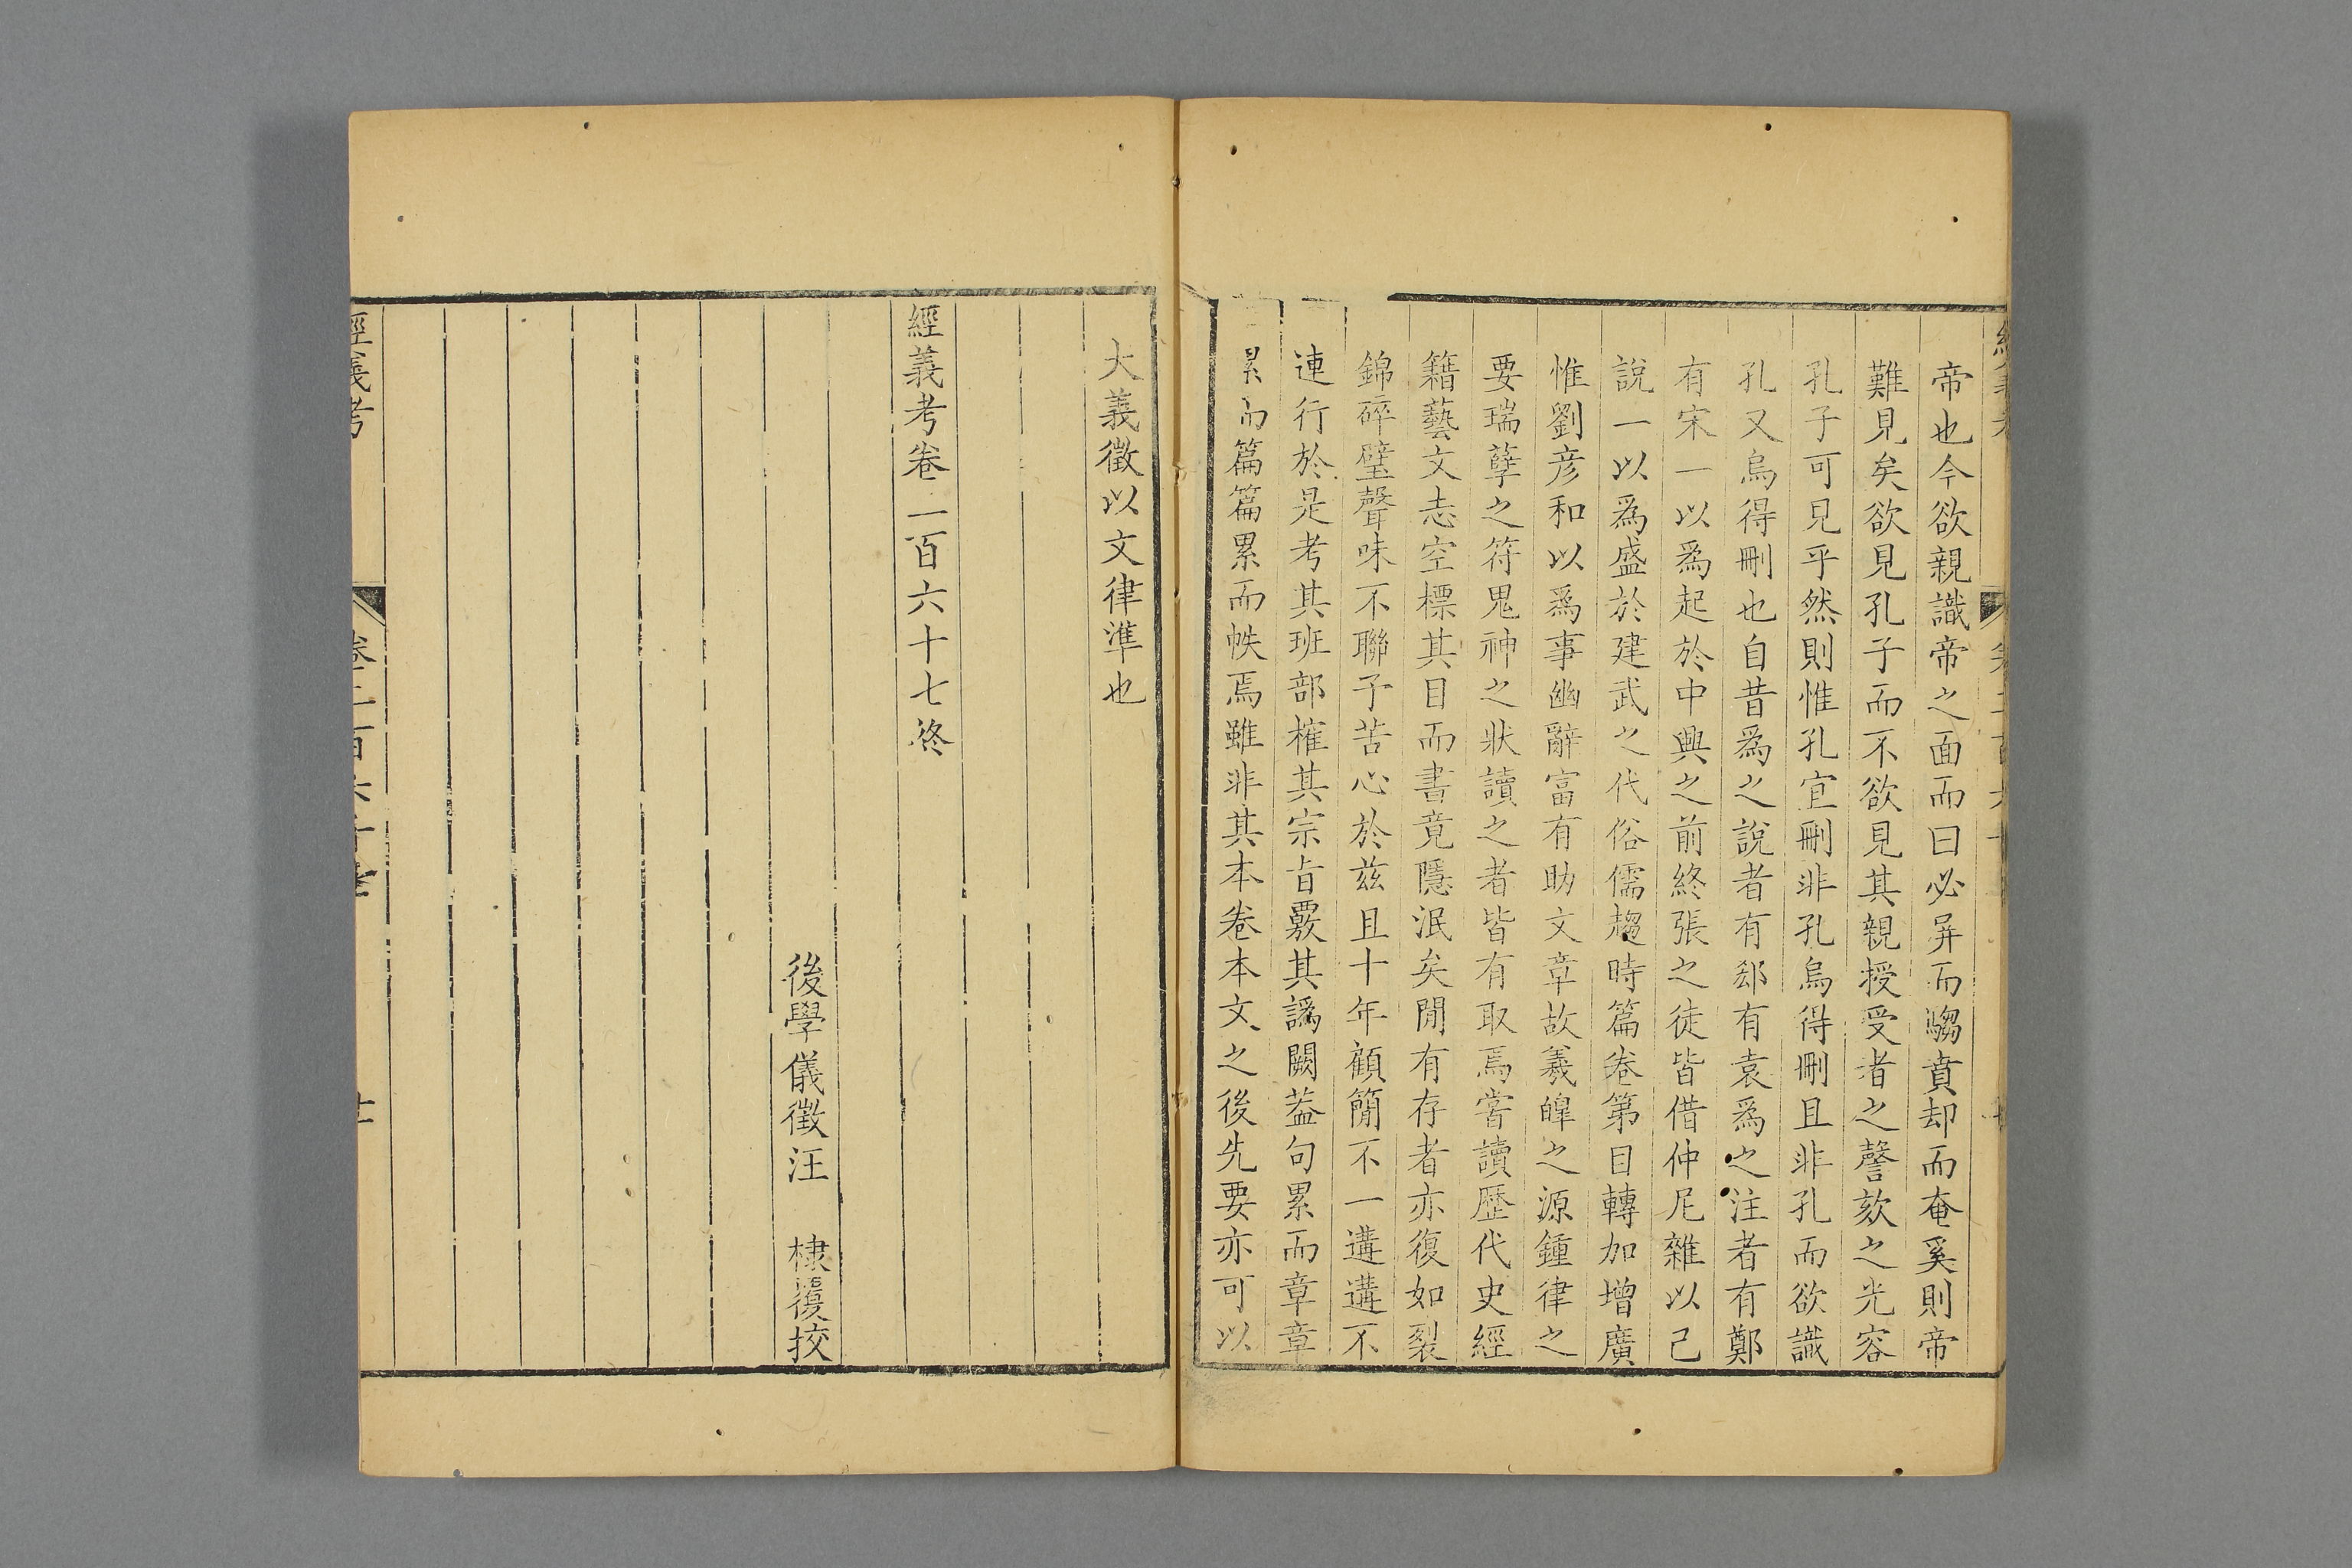 帝也今欲親識帝之面而曰必屏而騶賁却而奄奚則帝
難見矣欲見孔子而不欲見其親授受者之謦欬之光容
孔子可見乎然則惟孔宜刪非孔烏得刪且非孔而欲識
孔又烏得刪也自昔爲之說者有郄有袁爲之注者有鄭
有宋一以爲起於中興之前終張之徒皆借仲尼雜以己
說一以爲盛於建武之代俗儒趨時篇卷第目轉加增廣
惟劉彥和以爲事幽辭富有助文章故羲皞之源鍾律之
要瑞孽之符鬼神之狀讀之者皆有取焉嘗讀歷代史經
籍藝文志空標其目而書竟隱泯矣閒有存者亦復如裂
錦碎璧聲味不聯予苦心於兹且十年顧簡不一遘遘不
連行於是考其班部榷其宗旨覈其譌闕葢句累而章章
累而篇篇累而帙焉雖非其本卷本文之後先要亦可以
大義徵以文律準也
經義考卷二百六十七終
後學儀徵汪 棣覆挍
經義考 卷二百六十七